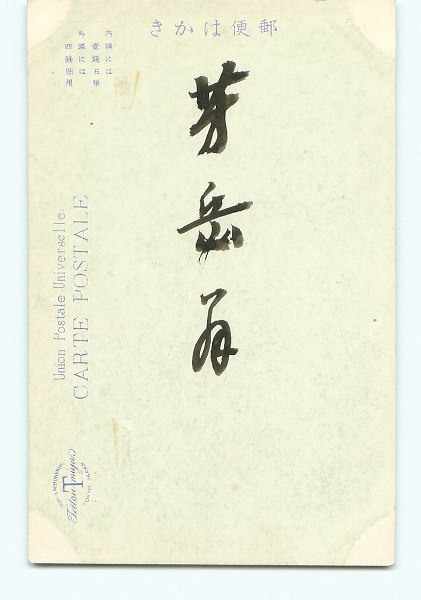 郵便はかき
内國には
壹錢五厘
外國には
四錢貼用
岳
Union Postale Universelle.
CARTE POSTALE